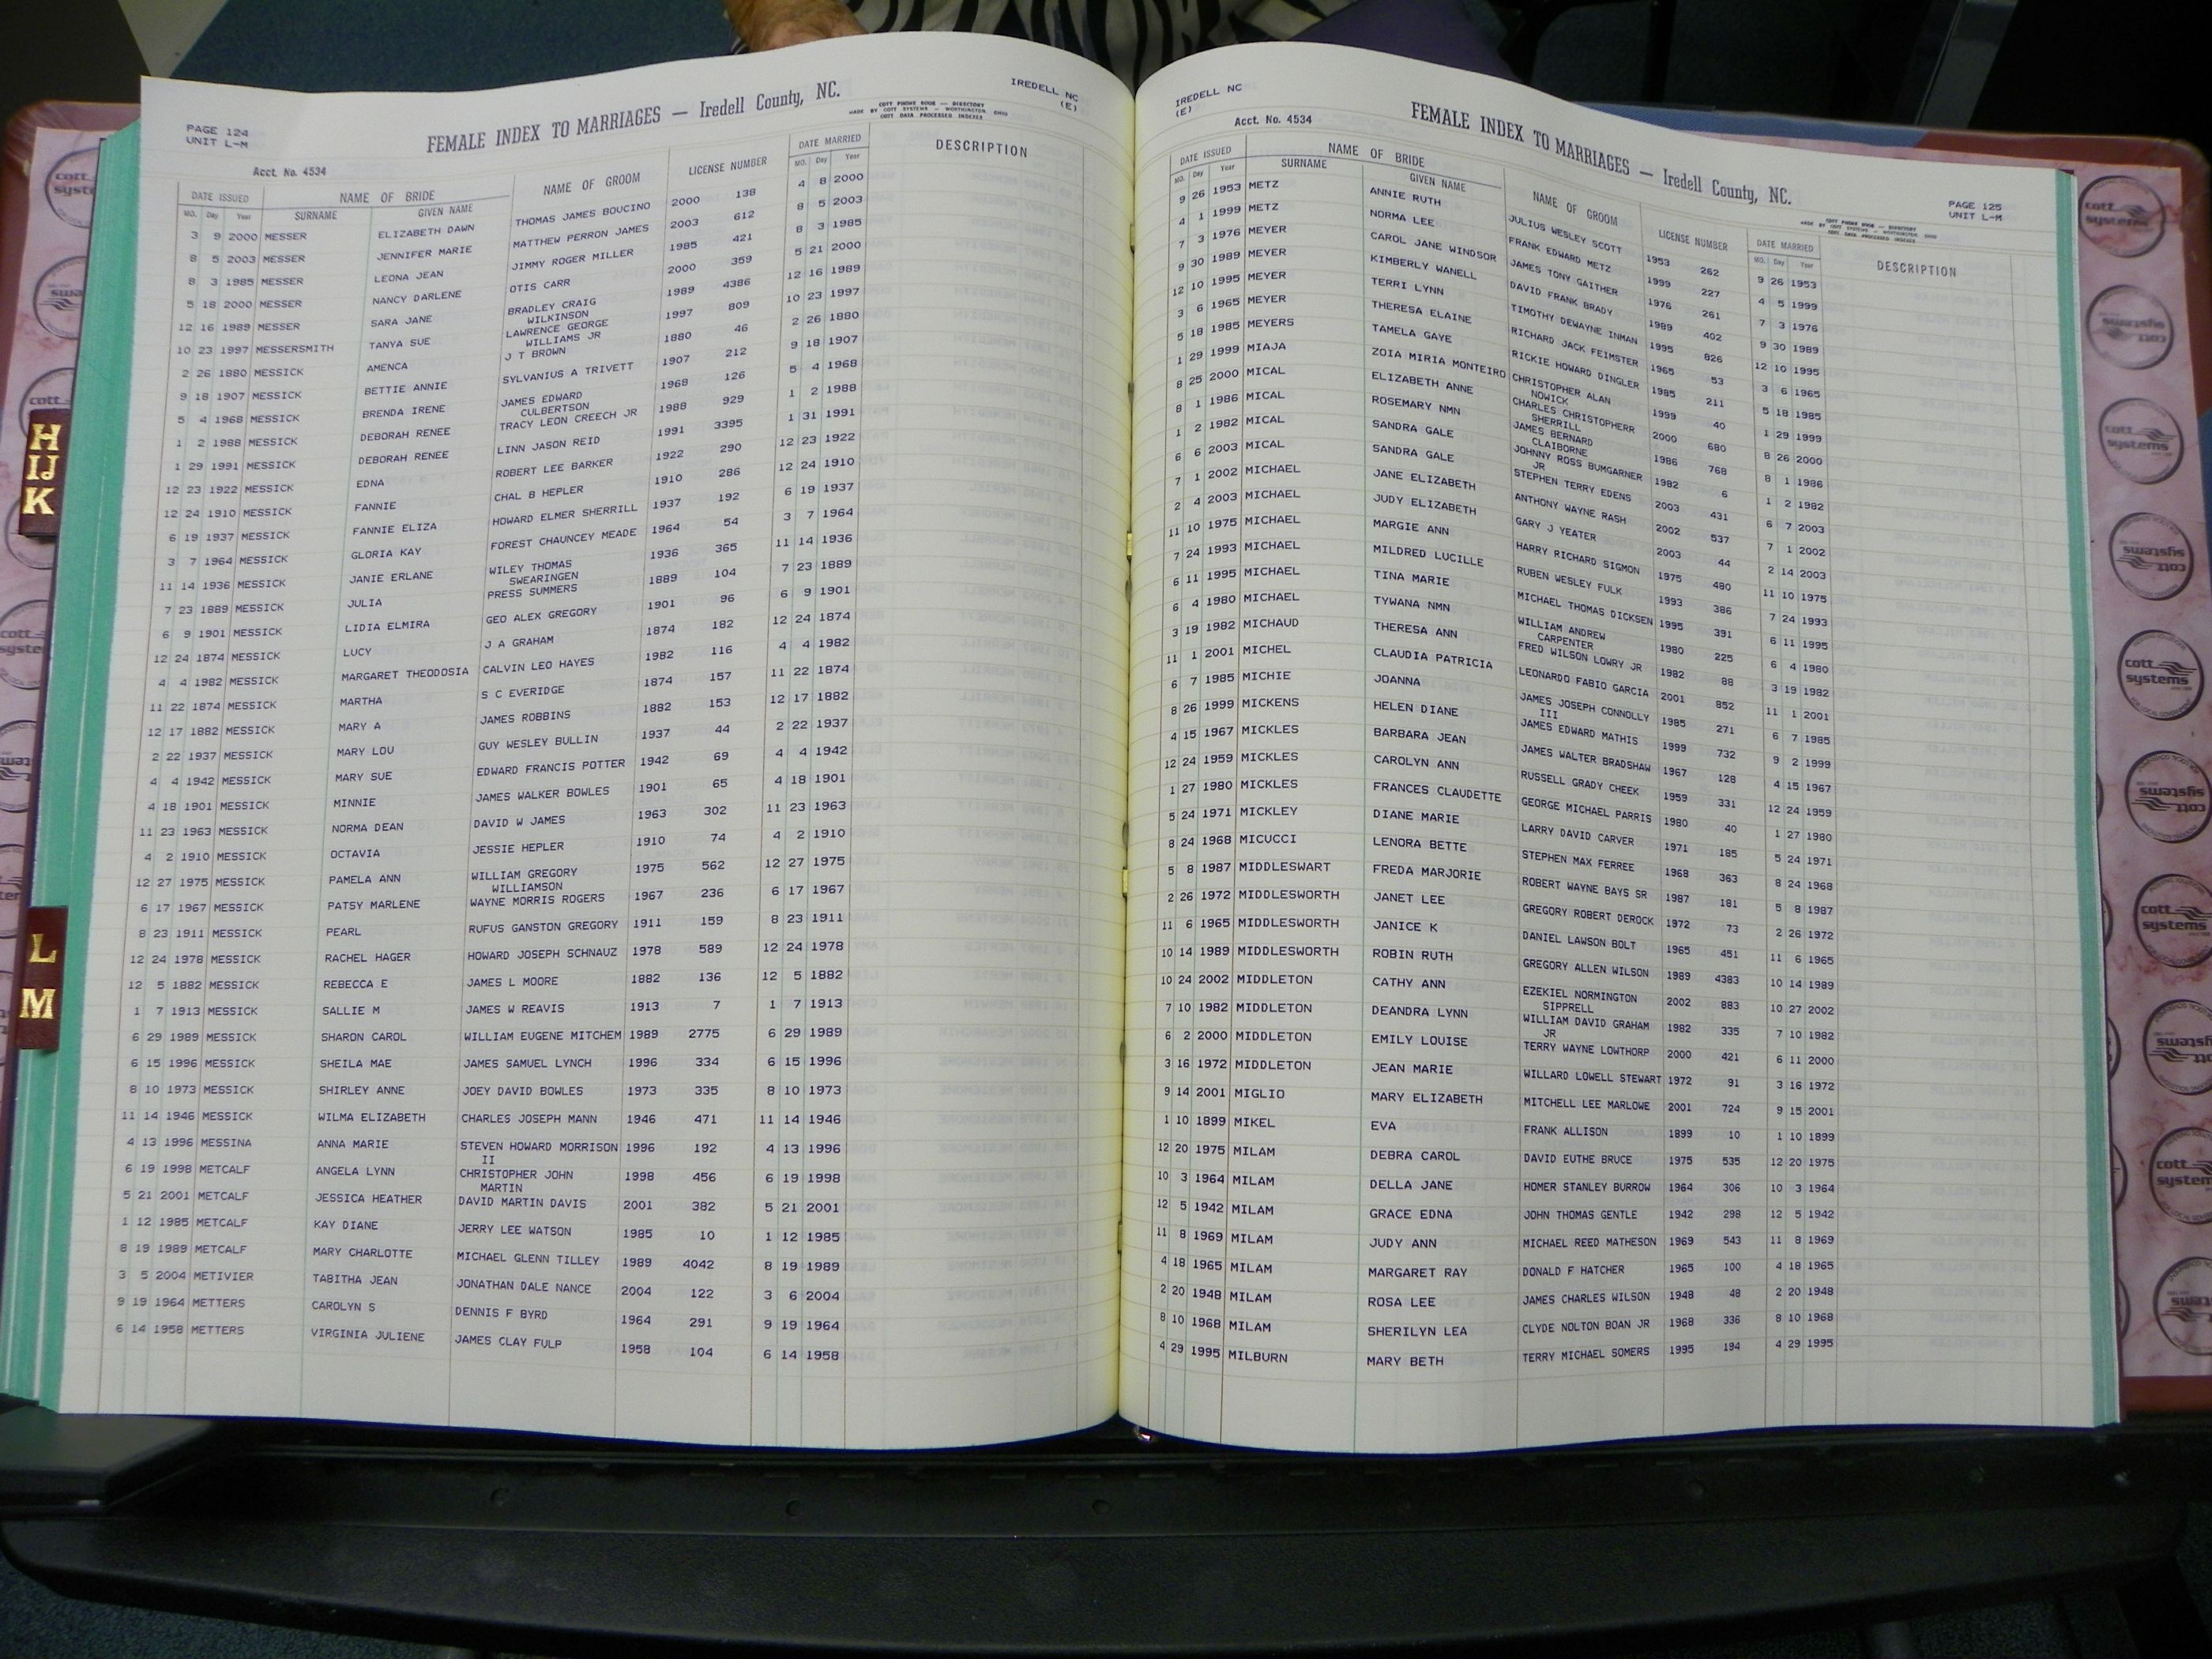 PAGE 124
UNIT L-M
FEMALE INDEX TO MARRIAGES — Iredell County, NC.
COTT PHONE BOOK — DIRECTORY
MADE BY COTT SYSTEMS — WORTHINGTON, OHIO
COTT DATA PROCESSED INDEXES
IREDELL NC
(E)
Acct. No. 4534
DATE ISSUED NAME OF BRIDE NAME OF GROOM LICENSE NUMBER DATE MARRIED DESCRIPTION
MO. Day Year SURNAME GIVEN NAME MO. Day Year
3 9 2000 MESSER ELIZABETH DAWN THOMAS JAMES BOUCINO 2000 138 4 8 2000
8 5 2003 MESSER JENNIFER MARIE MATTHEW PERRON JAMES 2003 612 8 5 2003
8 3 1985 MESSER LEONA JEAN JIMMY ROGER MILLER 1985 421 8 3 1985
5 18 2000 MESSER NANCY DARLENE OTIS CARR 2000 359 5 21 2000
12 16 1989 MESSER SARA JANE BRADLEY CRAIG 1989 4386 12 16 1989
WILKINSON
10 23 1997 MESSERSMITH TANYA SUE LAWRENCE GEORGE 1997 809 10 23 1997
WILLIAMS JR
2 26 1880 MESSICK AMENCA J T BROWN 1880 46 2 26 1880
9 18 1907 MESSICK BETTIE ANNIE SYLVANIUS A TRIVETT 1907 212 9 18 1907
5 4 1968 MESSICK BRENDA IRENE JAMES EDWARD 1968 126 5 4 1968
CULBERTSON
1 2 1988 MESSICK DEBORAH RENEE TRACY LEON CREECH JR 1988 929 1 2 1988
1 29 1991 MESSICK DEBORAH RENEE LINN JASON REID 1991 3395 1 31 1991
12 23 1922 MESSICK EDNA ROBERT LEE BARKER 1922 290 12 23 1922
12 24 1910 MESSICK FANNIE CHAL B HEPLER 1910 286 12 24 1910
6 19 1937 MESSICK FANNIE ELIZA HOWARD ELMER SHERRILL 1937 192 6 19 1937
3 7 1964 MESSICK GLORIA KAY FOREST CHAUNCEY MEADE 1964 54 3 7 1964
11 14 1936 MESSICK JANIE ERLANE WILEY THOMAS 1936 365 11 14 1936
SWEARINGEN
7 23 1889 MESSICK JULIA PRESS SUMMERS 1889 104 7 23 1889
6 9 1901 MESSICK LIDIA ELMIRA GEO ALEX GREGORY 1901 96 6 9 1901
12 24 1874 MESSICK LUCY J A GRAHAM 1874 182 12 24 1874
4 4 1982 MESSICK MARGARET THEODOSIA CALVIN LEO HAYES 1982 116 4 4 1982
11 22 1874 MESSICK MARTHA S C EVERIDGE 1874 157 11 22 1874
12 17 1882 MESSICK MARY A JAMES ROBBINS 1882 153 12 17 1882
2 22 1937 MESSICK MARY LOU GUY WESLEY BULLIN 1937 44 2 22 1937
4 4 1942 MESSICK MARY SUE EDWARD FRANCIS POTTER 1942 69 4 4 1942
4 18 1901 MESSICK MINNIE JAMES WALKER BOWLES 1901 65 4 18 1901
11 23 1963 MESSICK NORMA DEAN DAVID W JAMES 1963 302 11 23 1963
4 2 1910 MESSICK OCTAVIA JESSIE HEPLER 1910 74 4 2 1910
12 27 1975 MESSICK PAMELA ANN WILLIAM GREGORY 1975 562 12 27 1975
WILLIAMSON
6 17 1967 MESSICK PATSY MARLENE WAYNE MORRIS ROGERS 1967 236 6 17 1967
8 23 1911 MESSICK PEARL RUFUS GANSTON GREGORY 1911 159 8 23 1911
12 24 1978 MESSICK RACHEL HAGER HOWARD JOSEPH SCHNAUZ 1978 589 12 24 1978
12 5 1882 MESSICK REBECCA E JAMES L MOORE 1882 136 12 5 1882
1 7 1913 MESSICK SALLIE M JAMES W REAVIS 1913 7 1 7 1913
6 29 1989 MESSICK SHARON CAROL WILLIAM EUGENE MITCHEM 1989 2775 6 29 1989
6 15 1996 MESSICK SHEILA MAE JAMES SAMUEL LYNCH 1996 334 6 15 1996
8 10 1973 MESSICK SHIRLEY ANNE JOEY DAVID BOWLES 1973 335 8 10 1973
11 14 1946 MESSICK WILMA ELIZABETH CHARLES JOSEPH MANN 1946 471 11 14 1946
4 13 1996 MESSINA ANNA MARIE STEVEN HOWARD MORRISON 1996 192 4 13 1996
II
6 19 1998 METCALF ANGELA LYNN CHRISTOPHER JOHN 1998 456 6 19 1998
MARTIN
5 21 2001 METCALF JESSICA HEATHER DAVID MARTIN DAVIS 2001 382 5 21 2001
1 12 1985 METCALF KAY DIANE JERRY LEE WATSON 1985 10 1 12 1985
8 19 1989 METCALF MARY CHARLOTTE MICHAEL GLENN TILLEY 1989 4042 8 19 1989
3 5 2004 METIVIER TABITHA JEAN JONATHAN DALE NANCE 2004 122 3 6 2004
9 19 1964 METTERS CAROLYN S DENNIS F BYRD 1964 291 9 19 1964
6 14 1958 METTERS VIRGINIA JULIENE JAMES CLAY FULP 1958 104 6 14 1958
IREDELL NC
(E)
Acct. No. 4534
FEMALE INDEX TO MARRIAGES — Iredell County, NC.
COTT PHONE BOOK — DIRECTORY
MADE BY COTT SYSTEMS — WORTHINGTON, OHIO
COTT DATA PROCESSED INDEXES
PAGE 125
UNIT L-M
DATE ISSUED NAME OF BRIDE NAME OF GROOM LICENSE NUMBER DATE MARRIED DESCRIPTION
MO. Day Year SURNAME GIVEN NAME MO. Day Year
9 26 1953 METZ ANNIE RUTH JULIUS WESLEY SCOTT 1953 262 9 26 1953
4 1 1999 METZ NORMA LEE FRANK EDWARD METZ 1999 227 4 5 1999
7 3 1976 MEYER CAROL JANE WINDSOR JAMES TONY GAITHER 1976 261 7 3 1976
9 30 1989 MEYER KIMBERLY WANELL DAVID FRANK BRADY 1989 402 9 30 1989
12 10 1995 MEYER TERRI LYNN TIMOTHY DEWAYNE INMAN 1995 826 12 10 1995
3 6 1965 MEYER THERESA ELAINE RICHARD JACK FEIMSTER 1965 53 3 6 1965
5 18 1985 MEYERS TAMELA GAYE RICKIE HOWARD DINGLER 1985 211 5 18 1985
1 29 1999 MIAJA ZOIA MIRIA MONTEIRO CHRISTOPHER ALAN 1999 40 1 29 1999
NOWICK
8 25 2000 MICAL ELIZABETH ANNE CHARLES CHRISTOPHERR 2000 680 8 26 2000
SHERRILL
8 1 1986 MICAL ROSEMARY NMN JAMES BERNARD 1986 768 8 1 1986
CLAIBORNE
1 2 1982 MICAL SANDRA GALE JOHNNY ROSS BUMGARNER 1982 6 1 2 1982
JR
6 6 2003 MICAL SANDRA GALE STEPHEN TERRY EDENS 2003 431 6 7 2003
7 1 2002 MICHAEL JANE ELIZABETH ANTHONY WAYNE RASH 2002 537 7 1 2002
2 4 2003 MICHAEL JUDY ELIZABETH GARY J YEATER 2003 44 2 14 2003
11 10 1975 MICHAEL MARGIE ANN HARRY RICHARD SIGMON 1975 480 11 10 1975
7 24 1993 MICHAEL MILDRED LUCILLE RUBEN WESLEY FULK 1993 386 7 24 1993
6 11 1995 MICHAEL TINA MARIE MICHAEL THOMAS DICKSEN 1995 391 6 11 1995
6 4 1980 MICHAEL TYWANA NMN WILLIAM ANDREW 1980 225 6 4 1980
CARPENTER
3 19 1982 MICHAUD THERESA ANN FRED WILSON LOWRY JR 1982 88 3 19 1982
11 1 2001 MICHEL CLAUDIA PATRICIA LEONARDO FABIO GARCIA 2001 852 11 1 2001
6 7 1985 MICHIE JOANNA JAMES JOSEPH CONNOLLY 1985 271 6 7 1985
III
8 26 1999 MICKENS HELEN DIANE JAMES EDWARD MATHIS 1999 732 9 2 1999
4 15 1967 MICKLES BARBARA JEAN JAMES WALTER BRADSHAW 1967 128 4 15 1967
12 24 1959 MICKLES CAROLYN ANN RUSSELL GRADY CHEEK 1959 331 12 24 1959
1 27 1980 MICKLES FRANCES CLAUDETTE GEORGE MICHAEL PARRIS 1980 40 1 27 1980
5 24 1971 MICKLEY DIANE MARIE LARRY DAVID CARVER 1971 185 5 24 1971
8 24 1968 MICUCCI LENORA BETTE STEPHEN MAX FERREE 1968 363 8 24 1968
5 8 1987 MIDDLESWART FREDA MARJORIE ROBERT WAYNE BAYS SR 1987 181 5 8 1987
2 26 1972 MIDDLESWORTH JANET LEE GREGORY ROBERT DEROCK 1972 73 2 26 1972
11 6 1965 MIDDLESWORTH JANICE K DANIEL LAWSON BOLT 1965 451 11 6 1965
10 14 1989 MIDDLESWORTH ROBIN RUTH GREGORY ALLEN WILSON 1989 4383 10 14 1989
10 24 2002 MIDDLETON CATHY ANN EZEKIEL NORMINGTON 2002 883 10 27 2002
SIPPRELL
7 10 1982 MIDDLETON DEANDRA LYNN WILLIAM DAVID GRAHAM 1982 335 7 10 1982
JR
6 2 2000 MIDDLETON EMILY LOUISE TERRY WAYNE LOWTHORP 2000 421 6 11 2000
3 16 1972 MIDDLETON JEAN MARIE WILLARD LOWELL STEWART 1972 91 3 16 1972
9 14 2001 MIGLIO MARY ELIZABETH MITCHELL LEE MARLOWE 2001 724 9 15 2001
1 10 1899 MIKEL EVA FRANK ALLISON 1899 10 1 10 1899
12 20 1975 MILAM DEBRA CAROL DAVID EUTHE BRUCE 1975 535 12 20 1975
10 3 1964 MILAM DELLA JANE HOMER STANLEY BURROW 1964 306 10 3 1964
12 5 1942 MILAM GRACE EDNA JOHN THOMAS GENTLE 1942 298 12 5 1942
11 8 1969 MILAM JUDY ANN MICHAEL REED MATHESON 1969 543 11 8 1969
4 18 1965 MILAM MARGARET RAY DONALD F HATCHER 1965 100 4 18 1965
2 20 1948 MILAM ROSA LEE JAMES CHARLES WILSON 1948 48 2 20 1948
8 10 1968 MILAM SHERILYN LEA CLYDE NOLTON BOAN JR 1968 336 8 10 1968
4 29 1995 MILBURN MARY BETH TERRY MICHAEL SOMERS 1995 194 4 29 1995
H
IJ
K
L
M
cott
systems